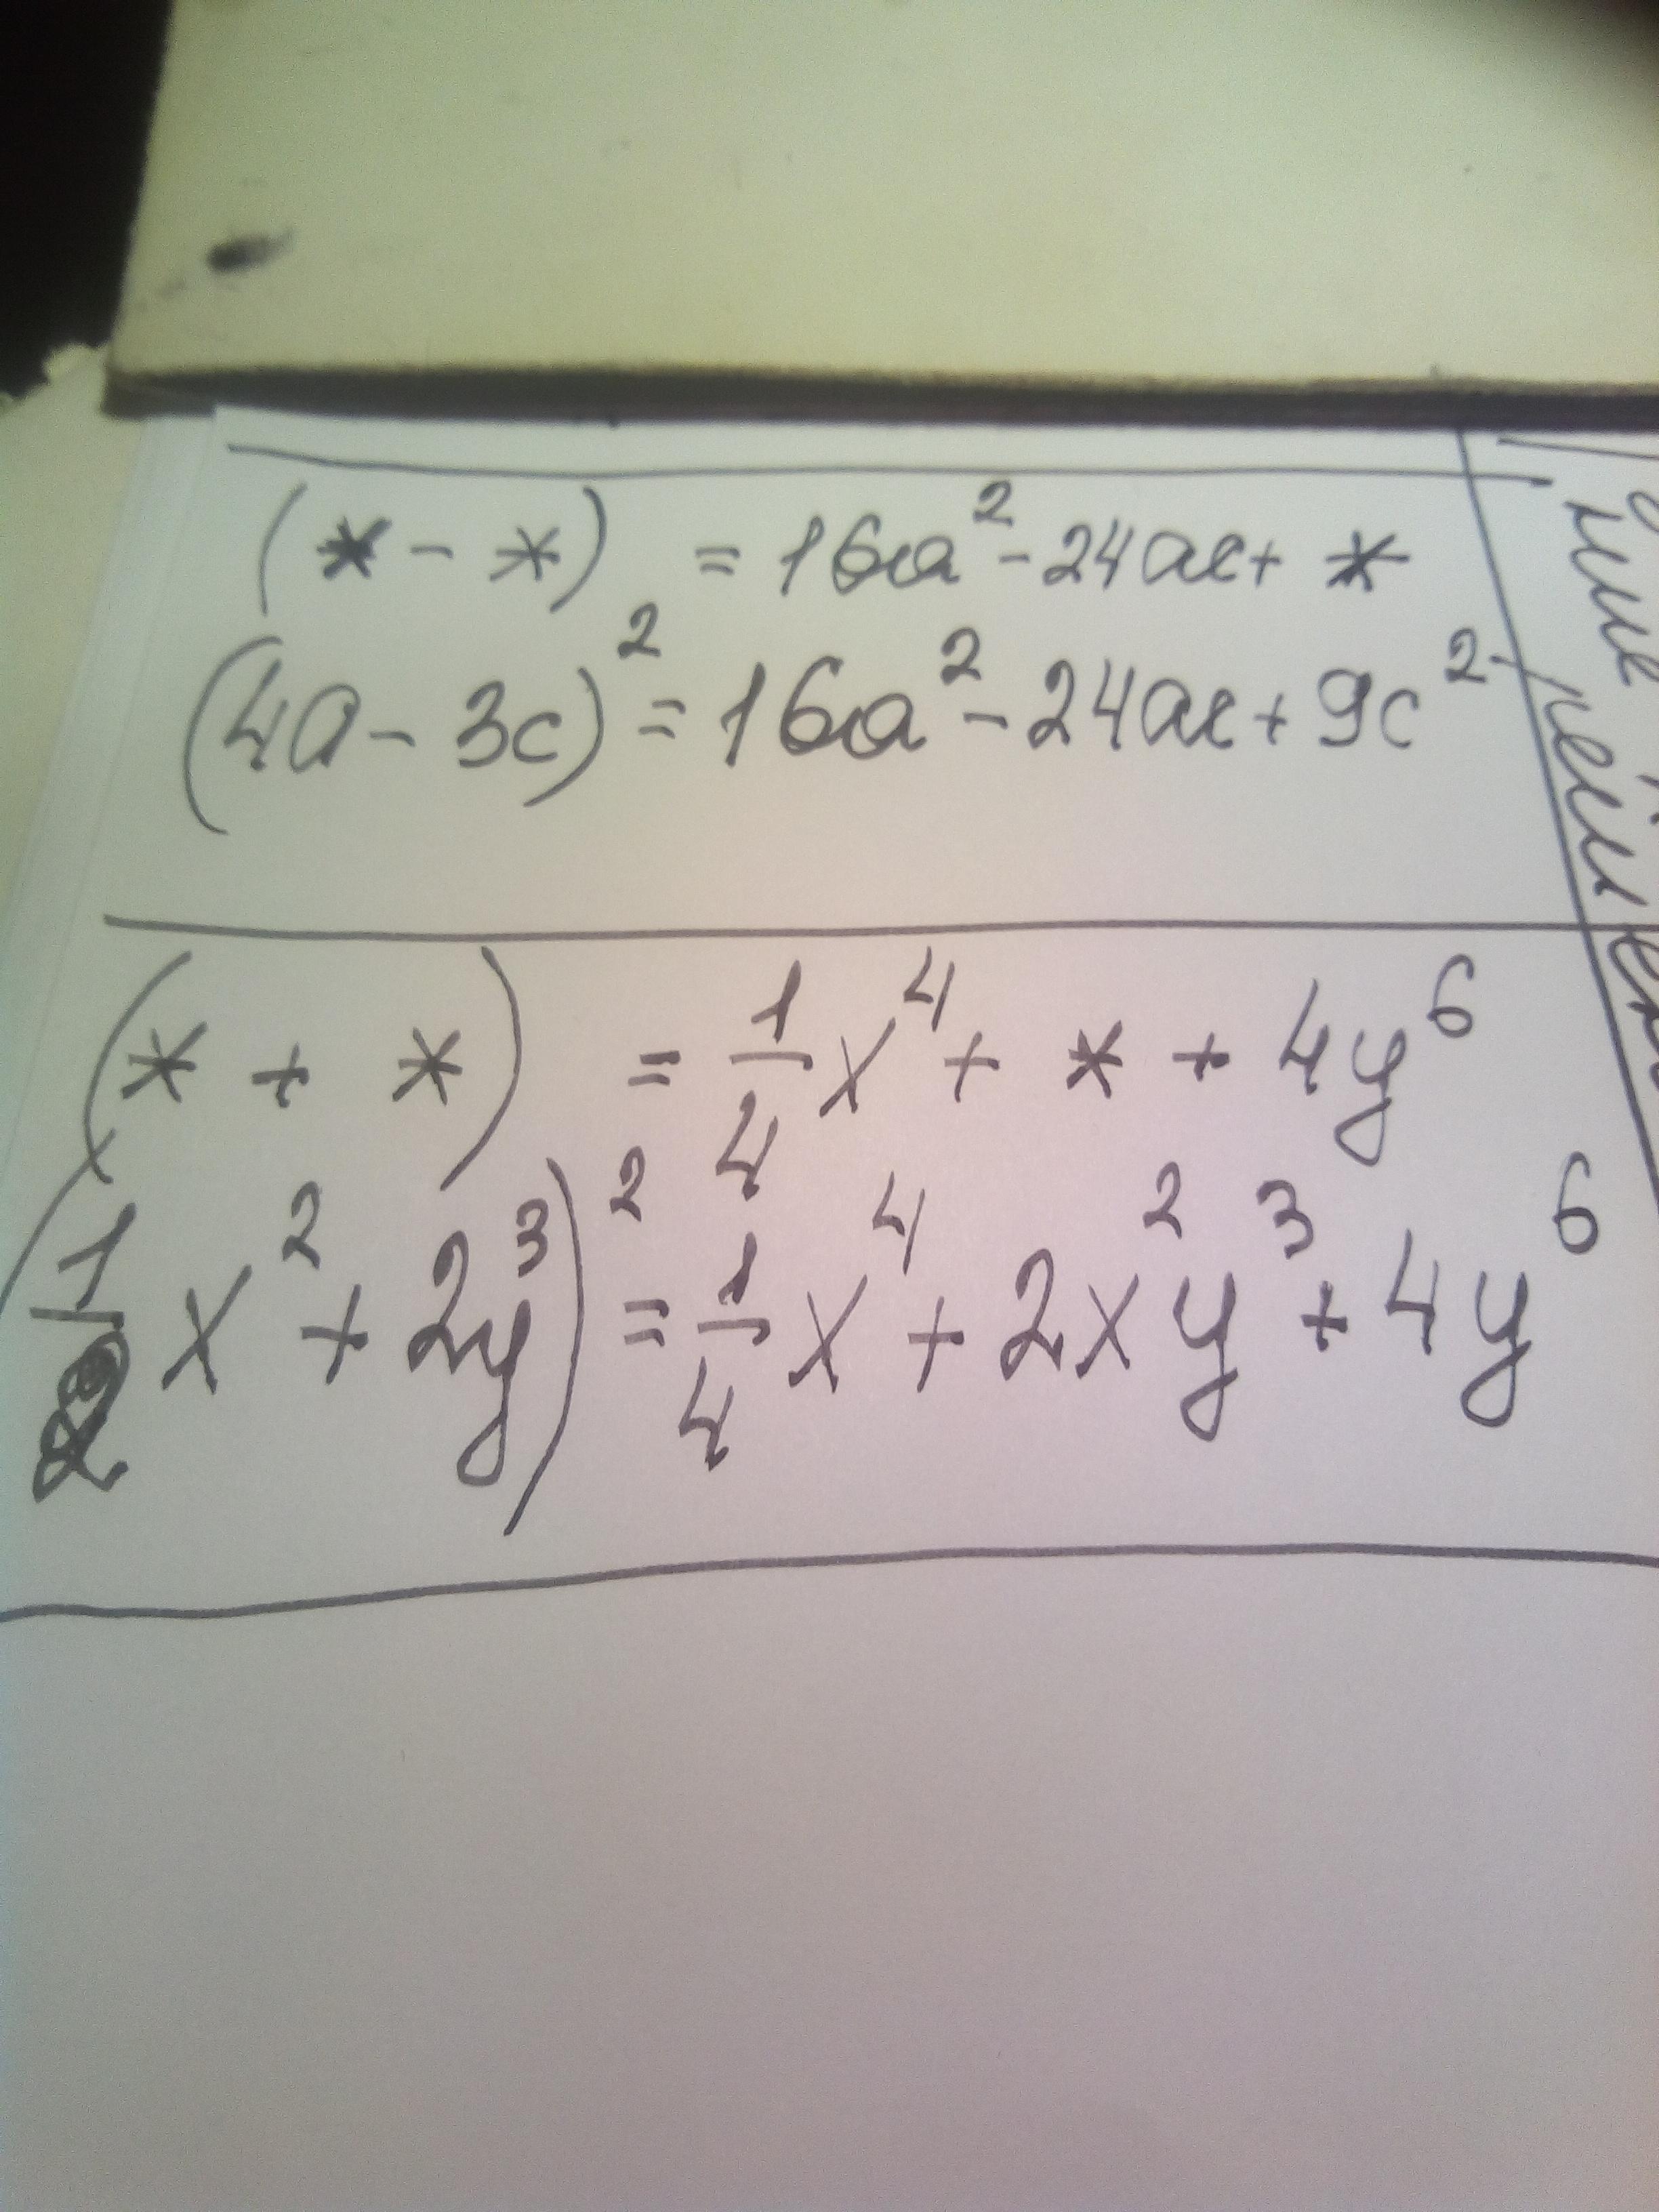 (* - *) = 16a² - 24ac + *
(4a - 3c)² = 16a² - 24ac + 9c²
(* + *) = 1/4 x⁴ + * + 4y⁶
(1/2 x² + 2y³)² = 1/4 x⁴ + 2x²y³ + 4y⁶